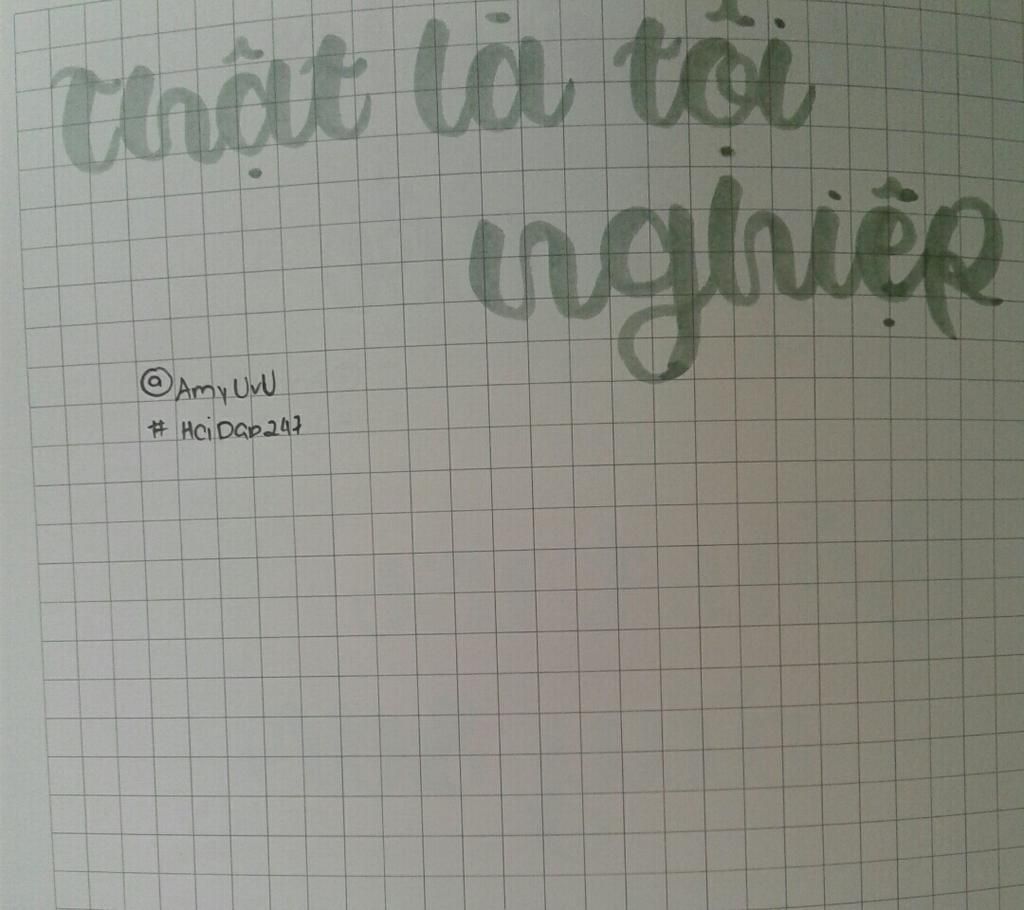 thật là tội
nghiệp
@AmyUvU
# HỏiDap247